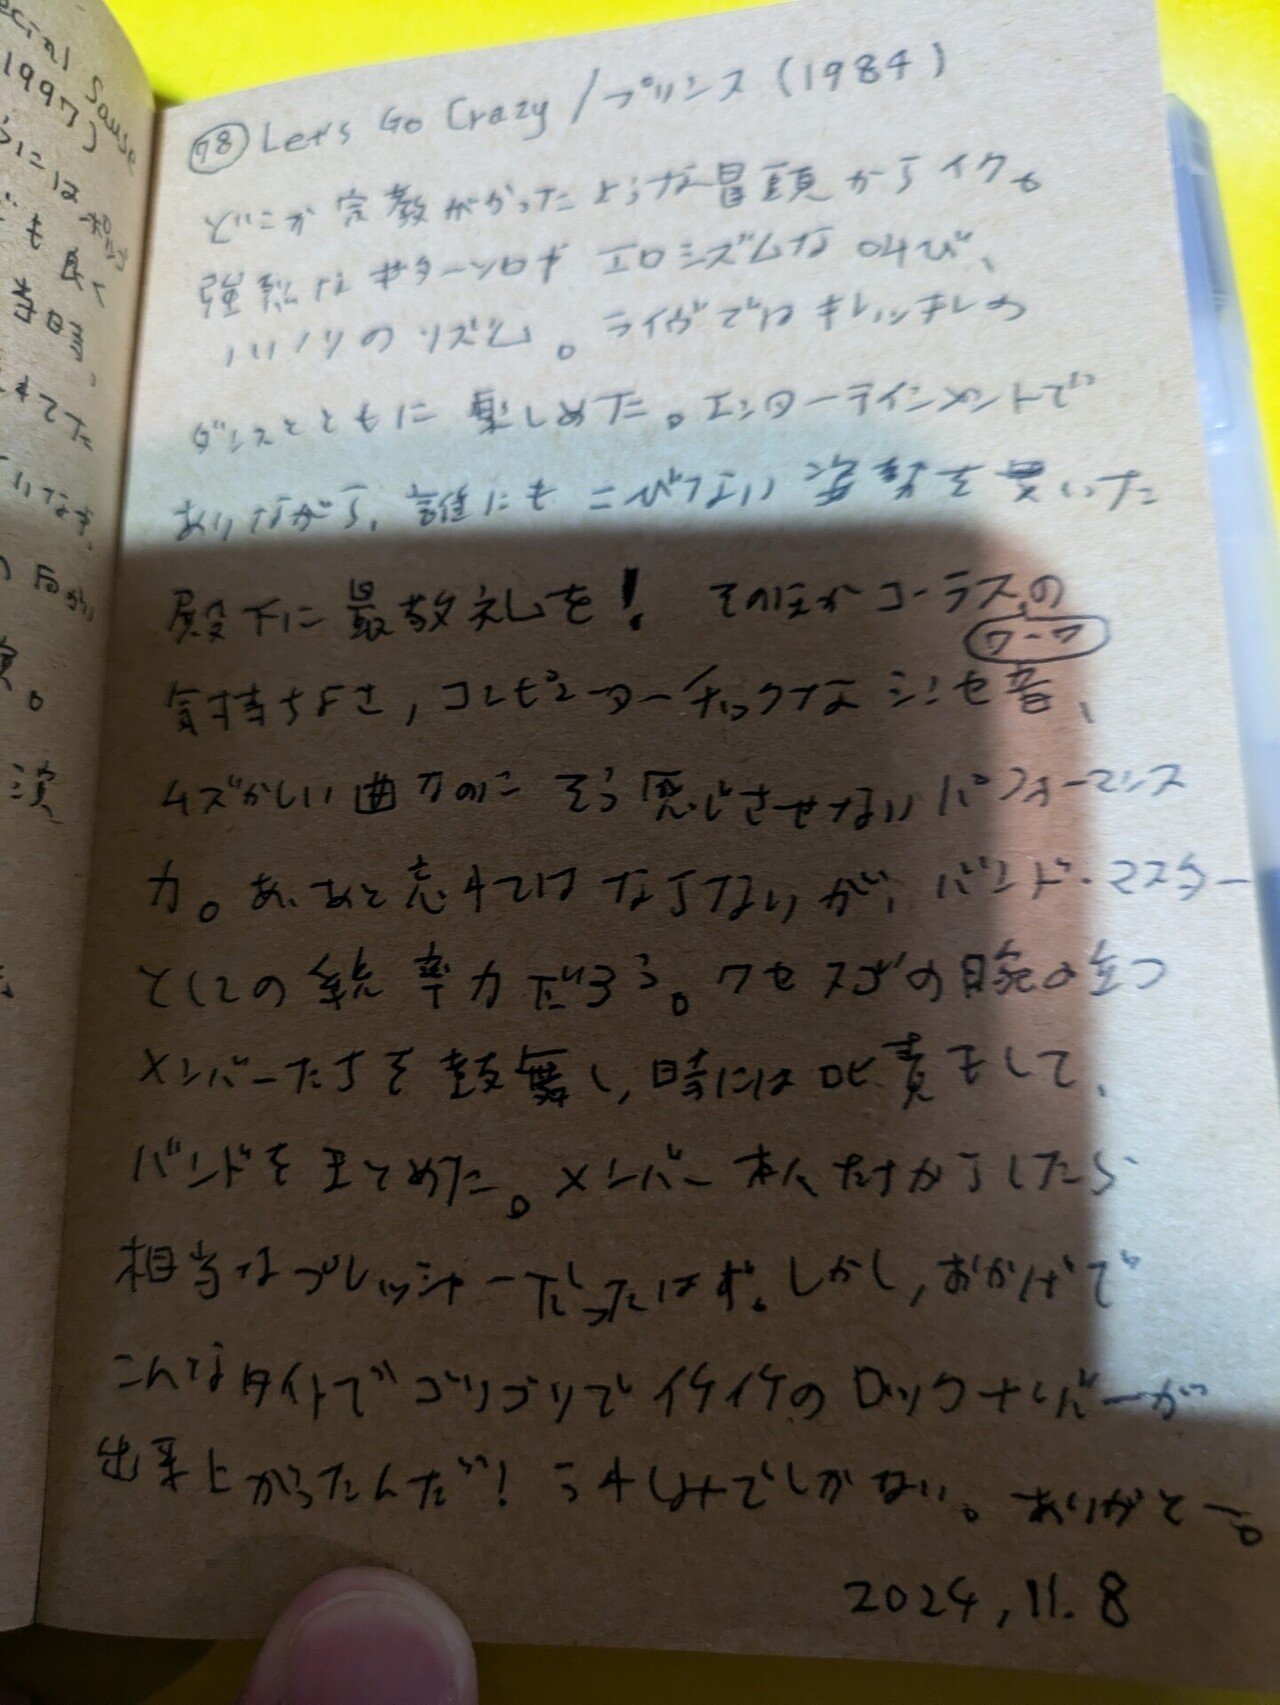 ecial Sause
1997)
らには
ども良く
当時、
れてた
演
98 Let's Go Crazy/プリンス(1984)
どこか宗教がかったような冒頭からイクも
強烈なギターソロやエロシズムな叫び、
ハリノリのリズム。ライヴではキレッキレの
ダンスとともに楽しめた。エンターテインメントで
ありながら、誰にもこびない姿勢を貫いた
殿下に最敬礼を! そのほかコーラスの
ワーワ
気持ちよさ,コンピューターチックなシンセ音、
ムズかしい曲なのにそう感じさせないパフォーマンス
力。あ、あと忘れてはならないが、バンド・マスター
としての統率力だろう。クセスゴの腕の立つ
メンバーたちを鼓舞し,時には叱責もして、
バンドをまとめた。メンバー本人たちからしたら
相当なプレッシャーだったはず。しかし,おかげで
こんなタイトでゴリゴリでイケイケのロックナンバーが
出来上がったんだ!うれしみでしかない。ありがとー。
2024,11.8